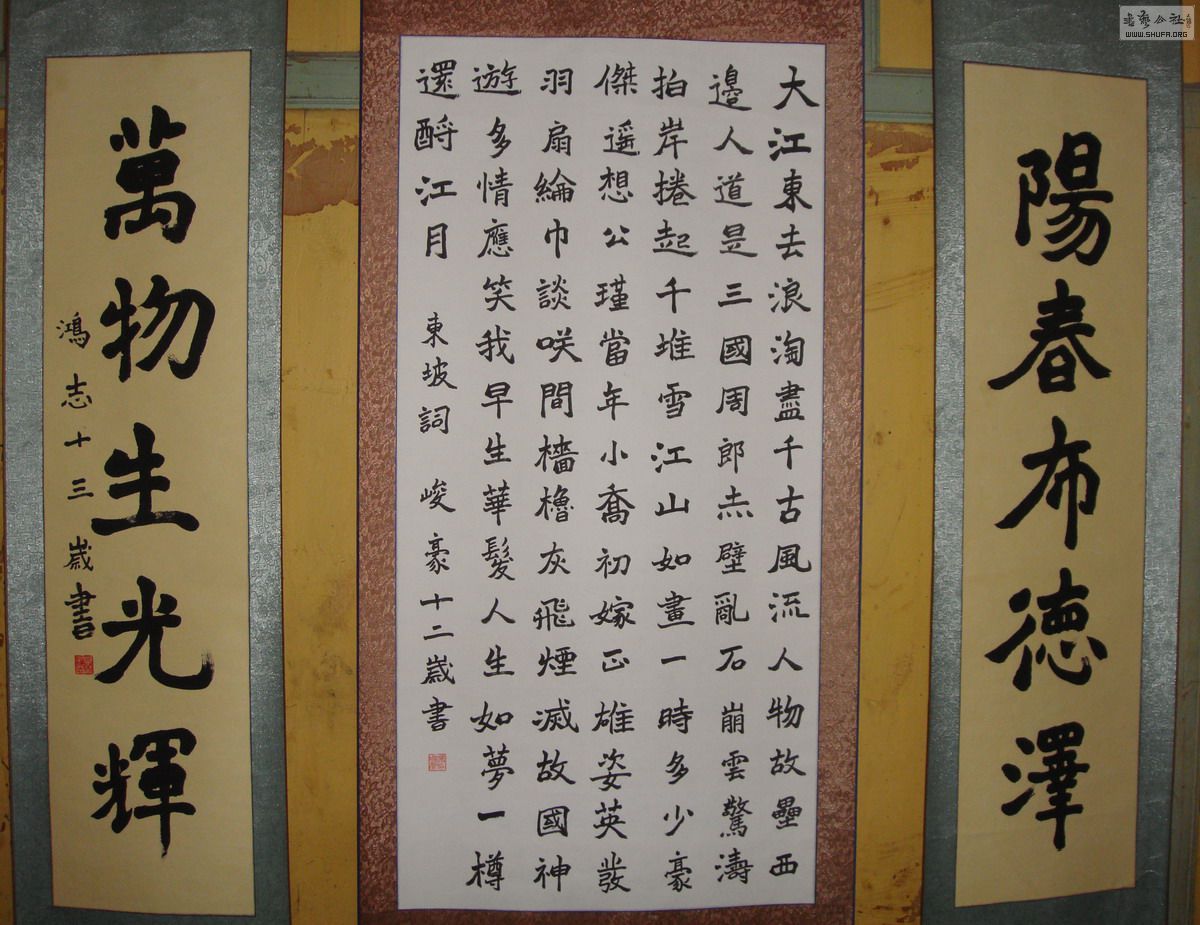 陽春布德澤
大江東去浪淘盡千古風流人物故壘西
邊人道是三國周郎赤壁亂石崩雲驚濤
拍岸捲起千堆雪江山如畫一時多少豪
傑遥想公瑾當年小喬初嫁正雄姿英發
羽扇綸巾談咲間檣櫓灰飛煙滅故國神
遊多情應笑我早生華髮人生如夢一樽
還酹江月 東坡詞 峻豪十二歲書
萬物生光輝
鴻志十三歲書
書藝公社
WWW.SHUFA.ORG